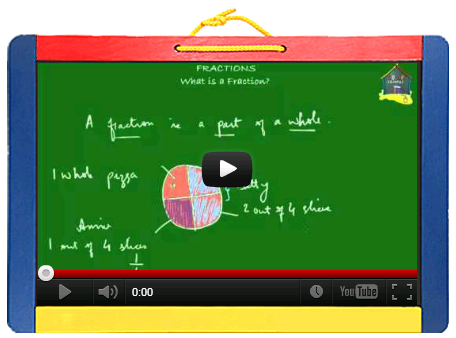 FRACTIONS
What is a Fraction?
A fraction is a part of a whole.
1 whole pizza
2 out of 4 slices
1 out of 4 slices
0:00
YouTube